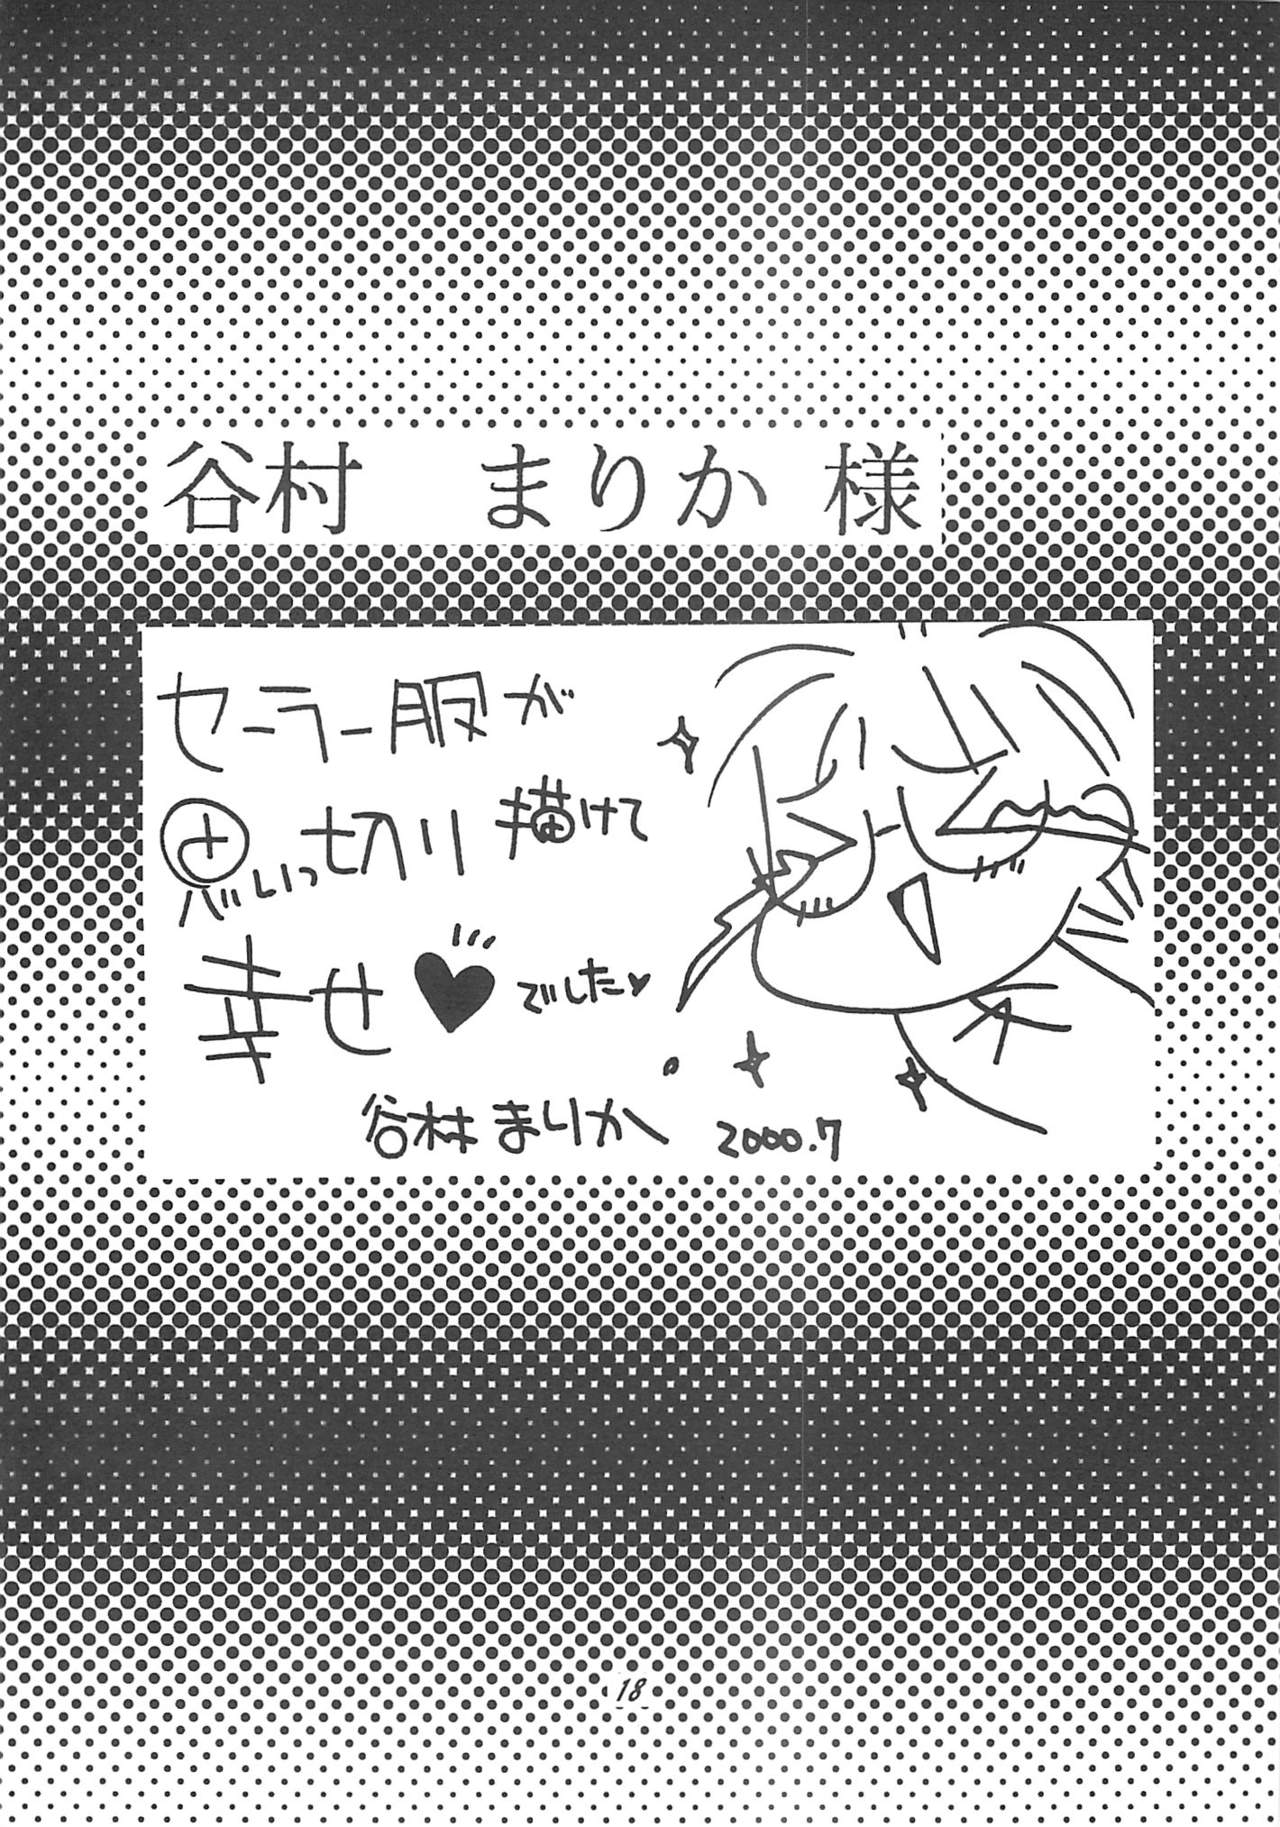 谷村 まりか 様
セーラー服が
思いっ切り描けて
幸せ♥でした♥
谷村まりか 2000.7
18